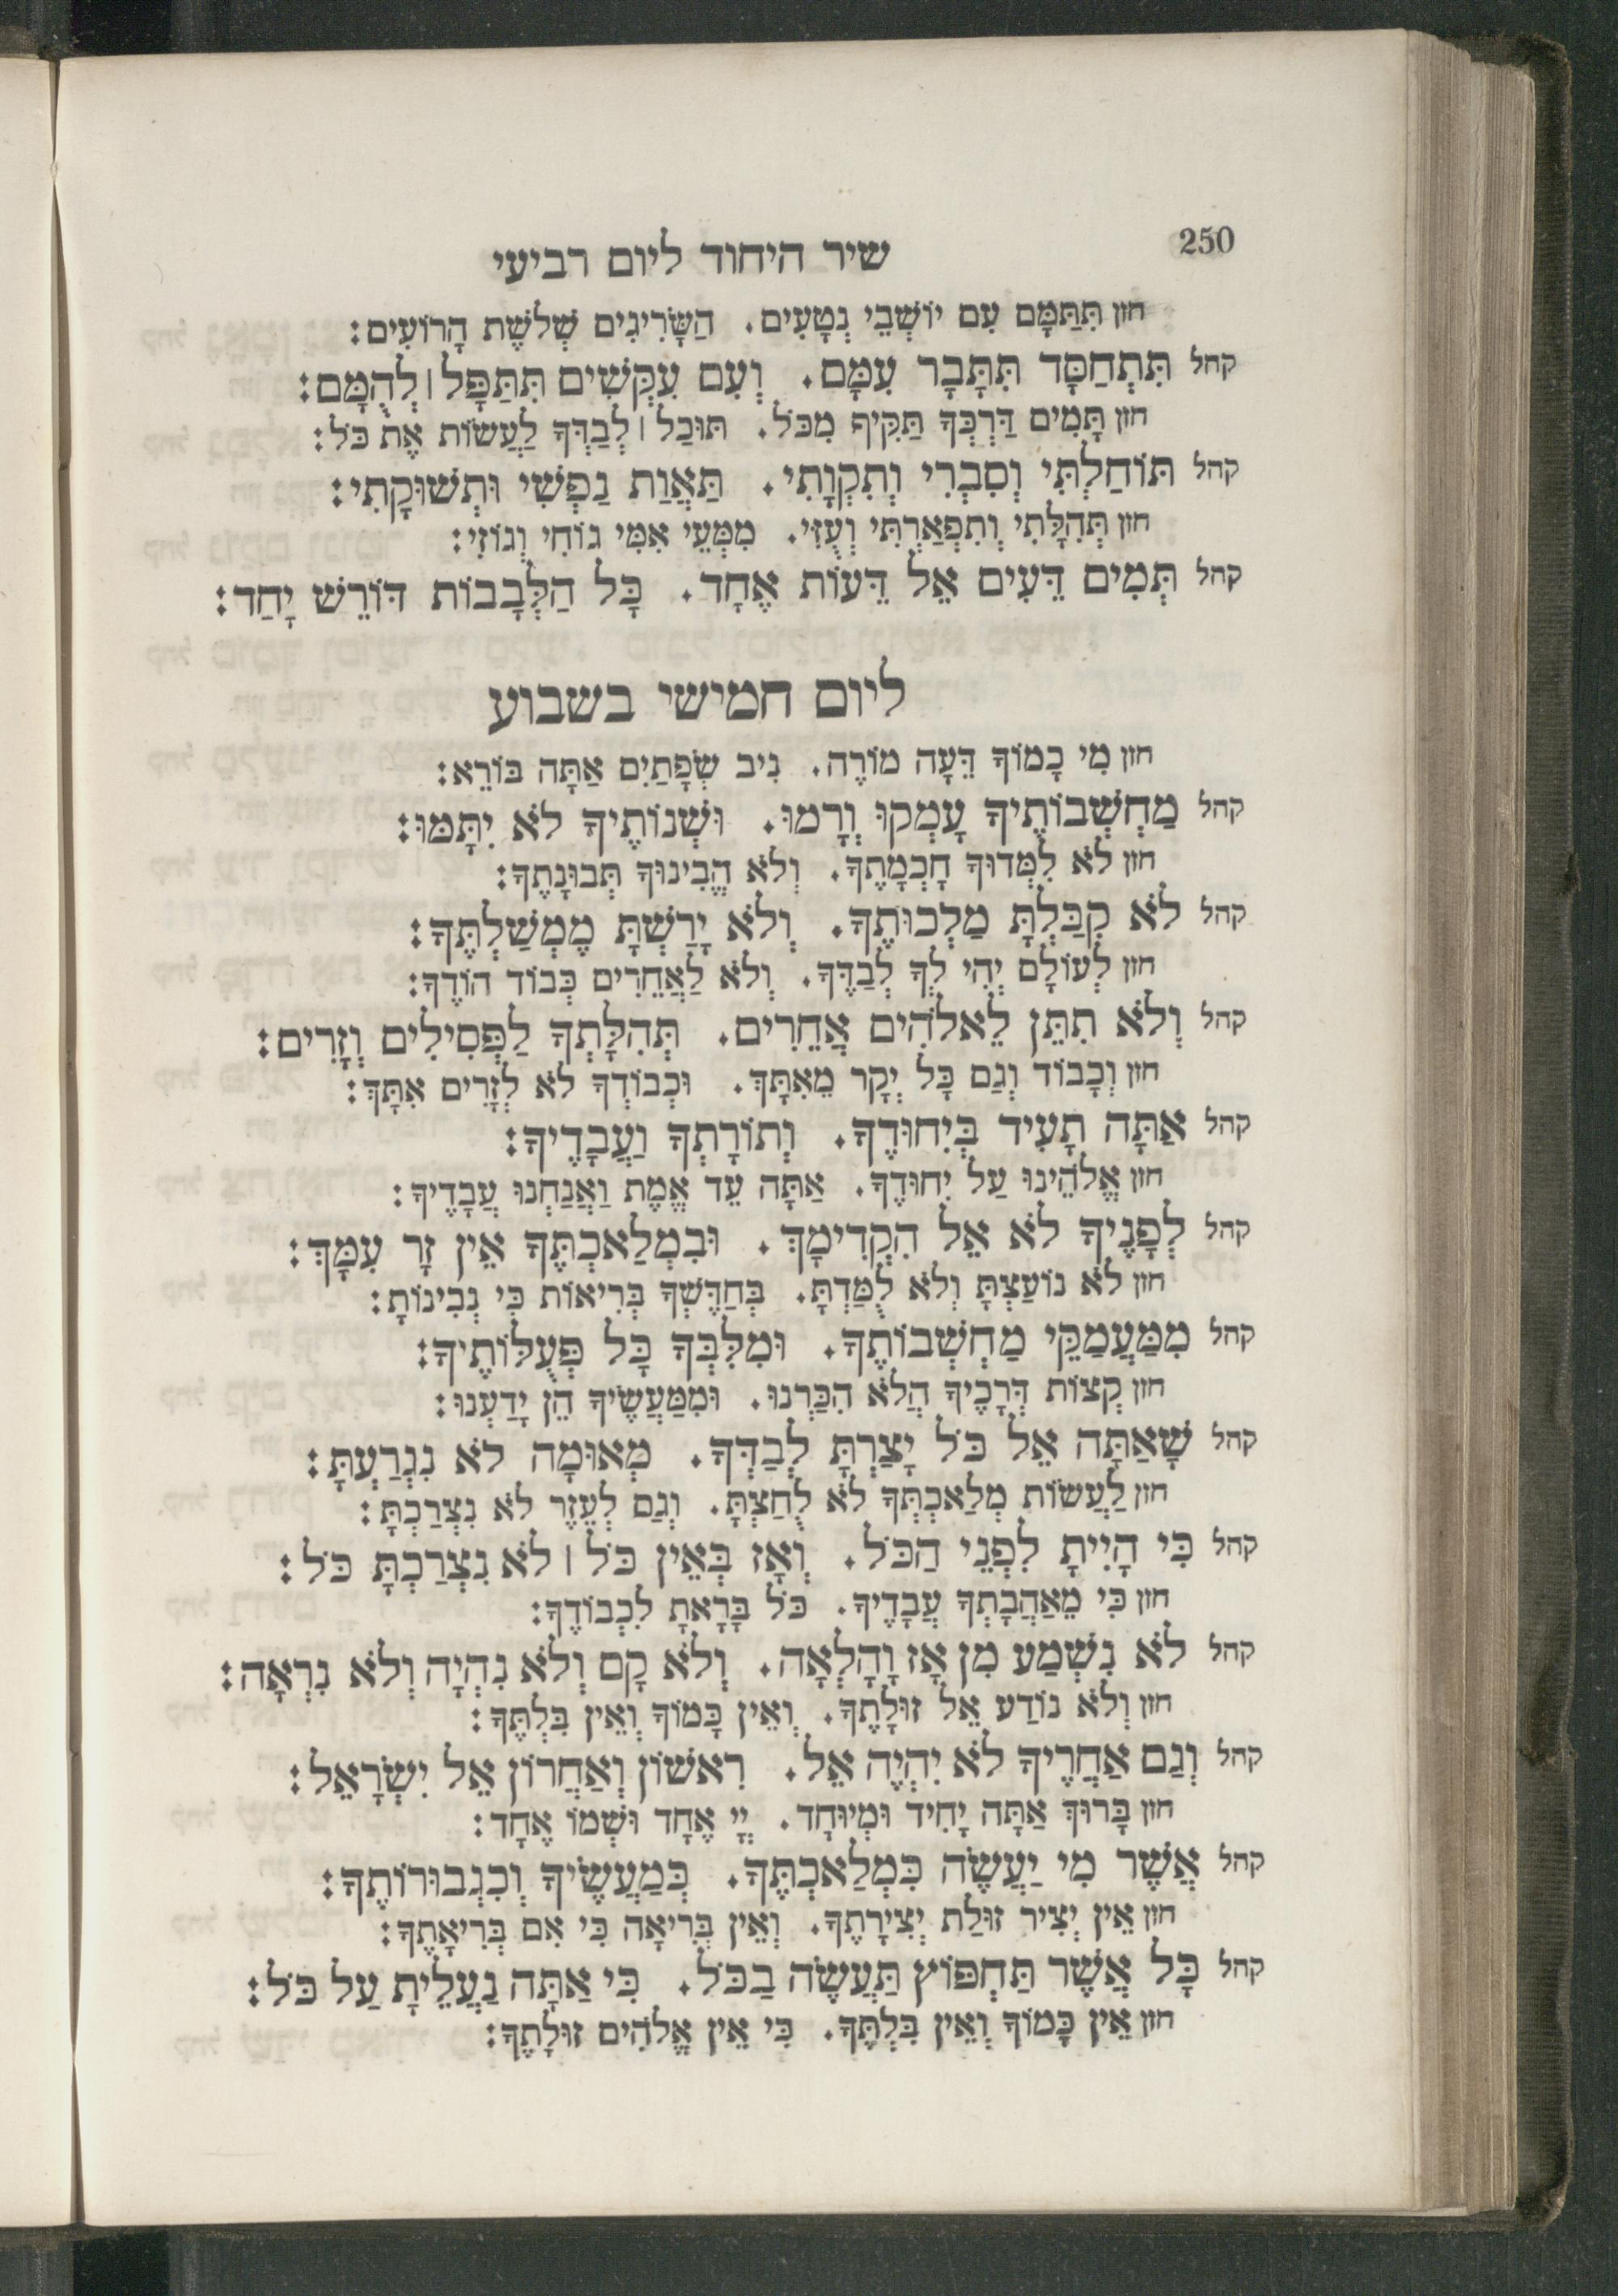 250
שיר היחוד ליום רביעי
חזן תִּתַּמָּם עִם יוֹשְׁבֵי נְטָעִים. הַשָּׂרִיגִים שְׁלשֶׁת הָרוֹעִים:
קהל תִּתְחַסָּד תִּתָּבָר עִמָּם. וְעִם עִקְּשִׁים תִּתַּפָּל ׀ לְהֻמָּם:
חזן תָּמִים דַּרְכְּךָ תַּקִּיף מִכֹּל. תּוּכַל ׀ לְבַדְּךָ לַעֲשׂוֹת אֶת כֹּל:
קהל תּוֹחַלְתִּי וְסִבְרִי וְתִקְוָתִי. תַּאֲוַת נַפְשִׁי וּתְשׁוּקָתִי:
חזן תְּהִלָּתִי וְתִפְאַרְתִּי וְעֻזִּי. מִמְּעֵי אִמִּי גוֹחִי וְגוֹזִי:
קהל תְּמִים דֵּעִים אֵל דֵּעוֹת אֶחָד. כָּל הַלְּבָבוֹת דּוֹרֵשׁ יָחַד:
ליום חמישי בשבוע
חזן מִי כָמוֹךָ דֵּעָה מוֹרֶה. נִיב שְׂפָתַיִם אַתָּה בּוֹרֵא:
קהל מַחְשְׁבוֹתֶיךָ עָמְקוּ וְרָמוּ. וּשְׁנוֹתֶיךָ לֹא יִתָּמּוּ:
חזן לֹא לִמְּדוּךָ חָכְמָתֶךָ. וְלֹא הֱבִינוּךָ תְּבוּנָתֶךָ:
קהל לֹא קִבַּלְתָּ מַלְכוּתֶךָ. וְלֹא יָרַשְׁתָּ מֶמְשַׁלְתֶּךָ:
חזן לְעוֹלָם יְהִי לְךָ לְבַדֶּךָ. וְלֹא לַאֲחֵרִים כְּבוֹד הוֹדֶךָ:
קהל וְלֹא תִתֵּן לֵאלֹהִים אֲחֵרִים. תְּהִלָּתְךָ לַפְּסִילִים וְזָרִים:
חזן וְכָבוֹד וְגַם כָּל יְקָר מֵאִתָּךְ. וּכְבוֹדְךָ לֹא לְזָרִים אִתָּךְ:
קהל אַתָּה תָעִיד בְּיִחוּדֶךָ. וְתוֹרָתְךָ וַעֲבָדֶיךָ:
חזן אֱלֹהֵינוּ עַל יִחוּדֶךָ. אַתָּה עֵד אֱמֶת וַאֲנַחְנוּ עֲבָדֶיךָ:
קהל לְפָנֶיךָ לֹא אֵל הִקְדִימָךְ. וּבִמְלַאכְתֶּךָ אֵין זָר עִמָּךְ:
חזן לֹא נוֹעַצְתָּ וְלֹא לֻמַּדְתָּ. בְּחַדֶּשְׁךָ בְּרִיאוֹת כִּי נְבִינוֹתָ:
קהל מִמַּעֲמַקֵּי מַחְשְׁבוֹתֶךָ. וּמִלִּבְּךָ כָּל פְּעֻלּוֹתֶיךָ:
חזן קְצוֹת דְּרָכֶיךָ הֲלֹא הִכַּרְנוּ. וּמִמַּעֲשֶׂיךָ הֵן יָדַעְנוּ:
קהל שָׁאַתָּה אֵל כֹּל יָצַרְתָּ לְבַדְּךָ. מְאוּמָה לֹא נִגְרַעְתָּ:
חזן לַעֲשׂוֹת מְלַאכְתְּךָ לֹא לֻחַצְתָּ. וְגַם לְעֵזֶר לֹא נִצְרַכְתָּ:
קהל כִּי הָיִיתָ לִפְנֵי הַכֹּל. וְאָז בְּאֵין כֹּל ׀ לֹא נִצְרַכְתָּ כֹּל:
חזן כִּי מֵאַהֲבָתְךָ עֲבָדֶיךָ. כֹּל בָּרָאתָ לִכְבוֹדֶךָ:
קהל לֹא נִשְׁמַע מִן אָז וָהָלְאָה. וְלֹא קָם וְלֹא נִהְיָה וְלֹא נִרְאָה:
חזן וְלֹא נוֹדַע אֵל זוּלָתֶךָ. וְאֵין כָּמוֹךָ וְאֵין בִּלְתֶּךָ:
קהל וְגַם אַחֲרֶיךָ לֹא יִהְיֶה אֵל. רִאשׁוֹן וְאַחֲרוֹן אֵל יִשְׂרָאֵל:
חזן בָּרוּךְ אַתָּה יָחִיד וּמְיוּחָד. יְיָ אֶחָד וּשְׁמוֹ אֶחָד:
קהל אֲשֶׁר מִי יַעֲשֶׂה כִּמְלַאכְתֶּךָ. כְּמַעֲשֶׂיךָ וְכִגְבוּרוֹתֶךָ:
חזן אֵין יְצִיר זוּלַת יְצִירָתֶךָ. וְאֵין בְּרִיאָה כִּי אִם בְּרִיאָתֶךָ:
קהל כָּל אֲשֶׁר תַּחְפּוֹץ תַּעֲשֶׂה בַכֹּל. כִּי אַתָּה נַעֲלֵיתָ עַל כֹּל:
חזן אֵין כָּמוֹךָ וְאֵין בִּלְתֶּךָ. כִּי אֵין אֱלֹהִים זוּלָתֶךָ: